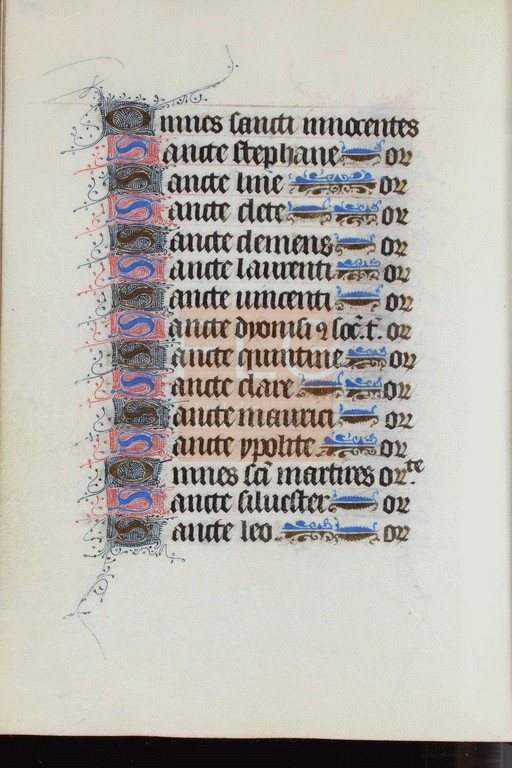 Omnes sancti innocentes
Sancte stephane or
Sancte line or
Sancte clete or
Sancte clemens or
Sancte laurenti or
Sancte vincenti or
Sancte dyonisi ꝯ soc̄. t. or
Sancte quintine or
Sancte clare or
Sancte maurici or
Sancte ypolite or
Omnes sc̄i martires orte.
Sancte siluester or
Sancte leo or